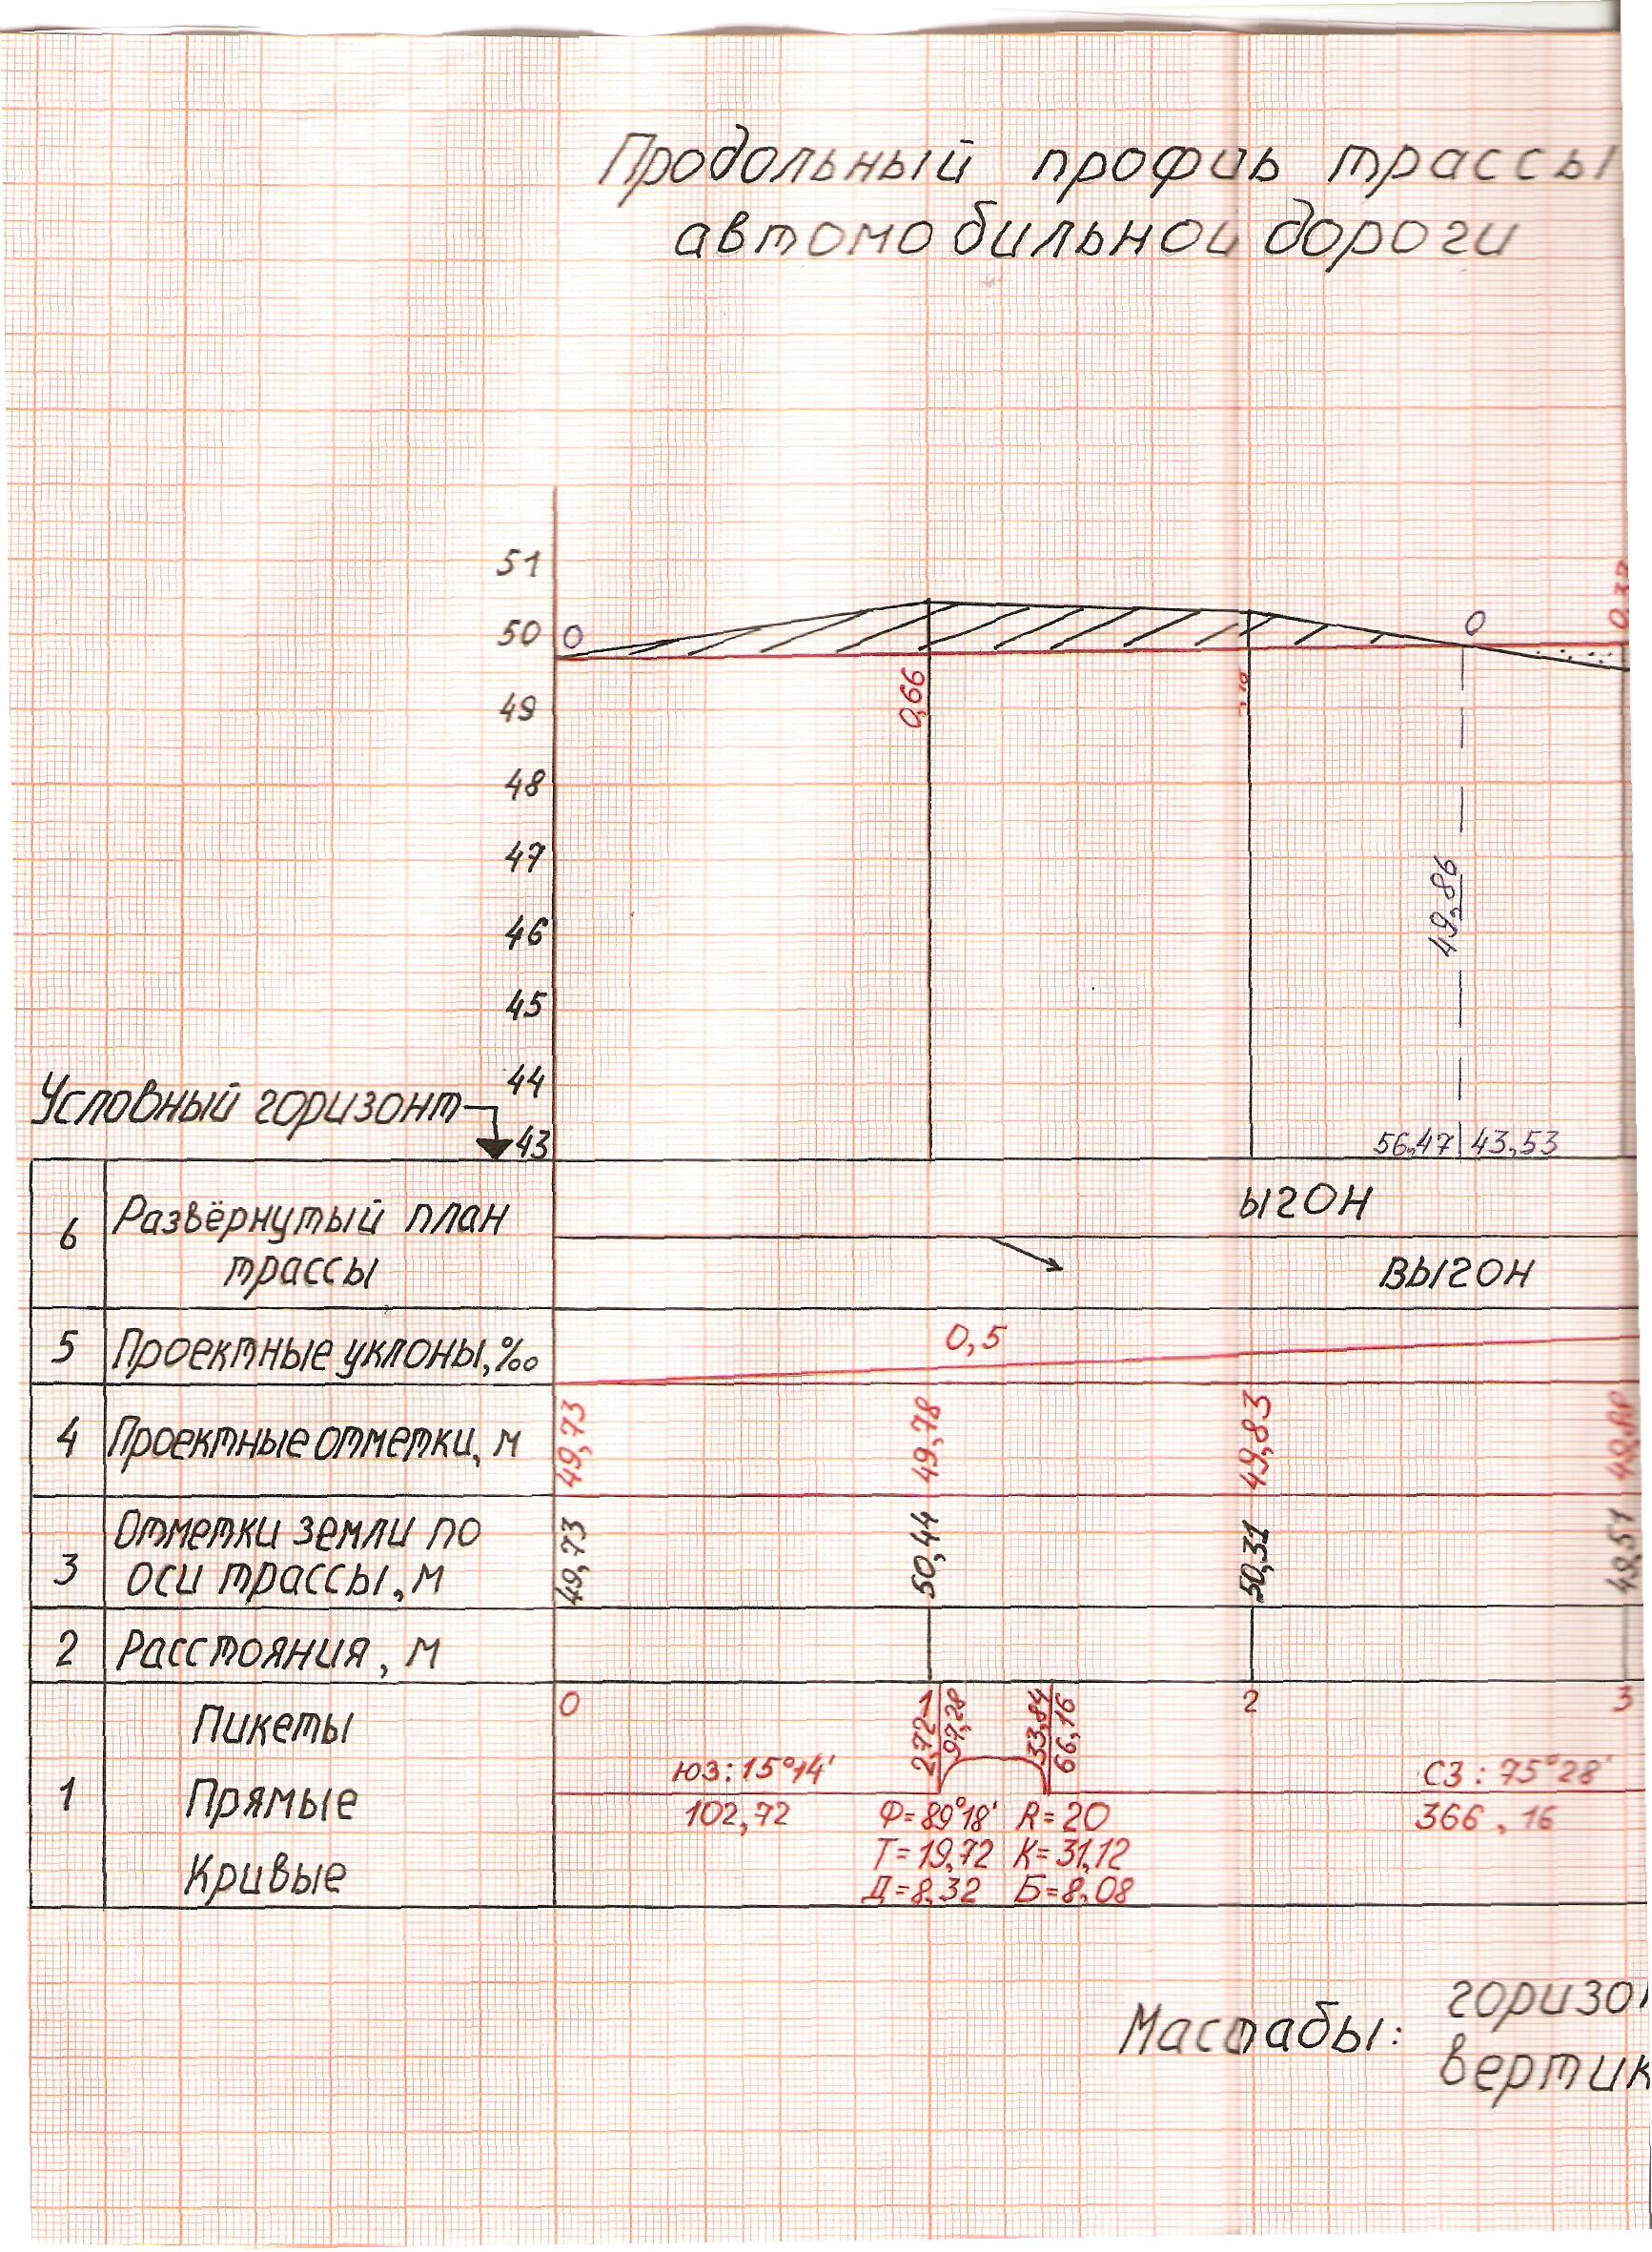 Продольный профиь трассы
автомобильной дороги
51
50
49
48
47
46
45
44
43
0
0
0,66
49,86
56,47 43,53
Условный горизонт
6 Развёрнутый план
трассы
ыгон
выгон
5 Проектные уклоны,‰
0,5
4 Проектные отметки, м
49,73 49,78 49,83
3 Отметки земли по
оси трассы, м
49,73 50,44 50,31 49,51
2 Расстояния, м
1 Пикеты
Прямые
Кривые
0 1 2 3
2,72 97,28 33,84 66,16
ЮЗ: 15°14'
102,72
Ф=89°18' R=20
Т=19,72 К=31,12
Д=8,32 Б=8,08
СЗ: 75°28'
366,16
Мастабы:
горизо
вертик